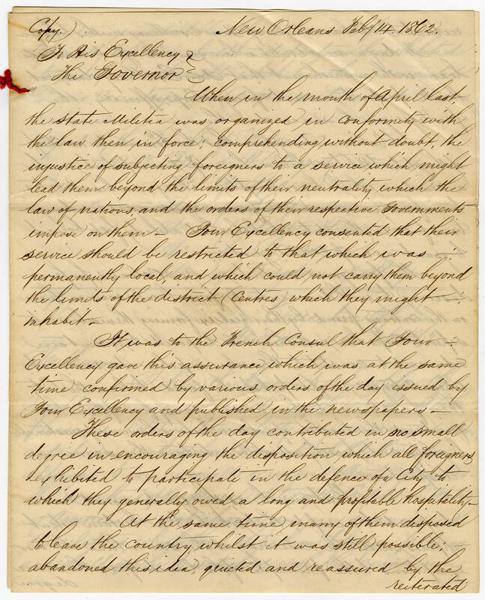 Copy.)
New Orleans Feby 14 1862.
To His Excellency
The Governor
When in the month of April last,
the State Militia was organized in conformity with
the law then in force; comprehending without doubt, the
injustice of subjecting foreigners to a service which might
lead them beyond the limits of their neutrality which the
law of nations, and the orders of their respective Governments
impose on them — Your Excellency consented that their
service should be restricted to that which was
permanently local, and which could not carry them beyond
the limits of the district (Centres) which they might
inhabit —
It was to the French Consul that Your
Excellency gave this assurance which was at the same
time confirmed by various orders of the day issued by
Your Excellency and published in the newspapers —
These orders of the day contributed in no small
degree in encouraging the disposition which all foreigners
exhibited to participate in the defence of a City to
which they generally owed a long and profitable Hospitality —
At the same time many of them disposed
to leave the country whilst it was still possible;
abandoned this idea, quieted and reassured by the
reiterated